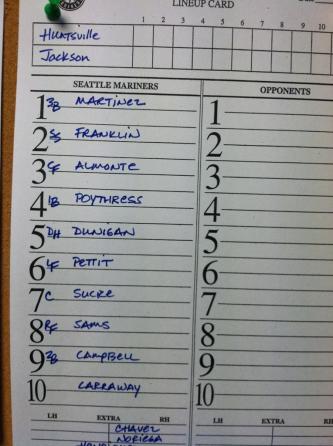 LINEUP CARD
1 2 3 4 5 6 7 8 9 10
Huntsville
Jackson
SEATTLE MARINERS OPPONENTS
1 3B MARTINEZ 1
2 SS FRANKLIN 2
3 CF ALMONTE 3
4 1B POYTHRESS 4
5 DH DUNIGAN 5
6 LF PETTIT 6
7 C SUCRE 7
8 RF SAMS 8
9 2B CAMPBELL 9
10 CARRAWAY 10
LH EXTRA RH LH EXTRA
CHAVEZ
NORIEGA